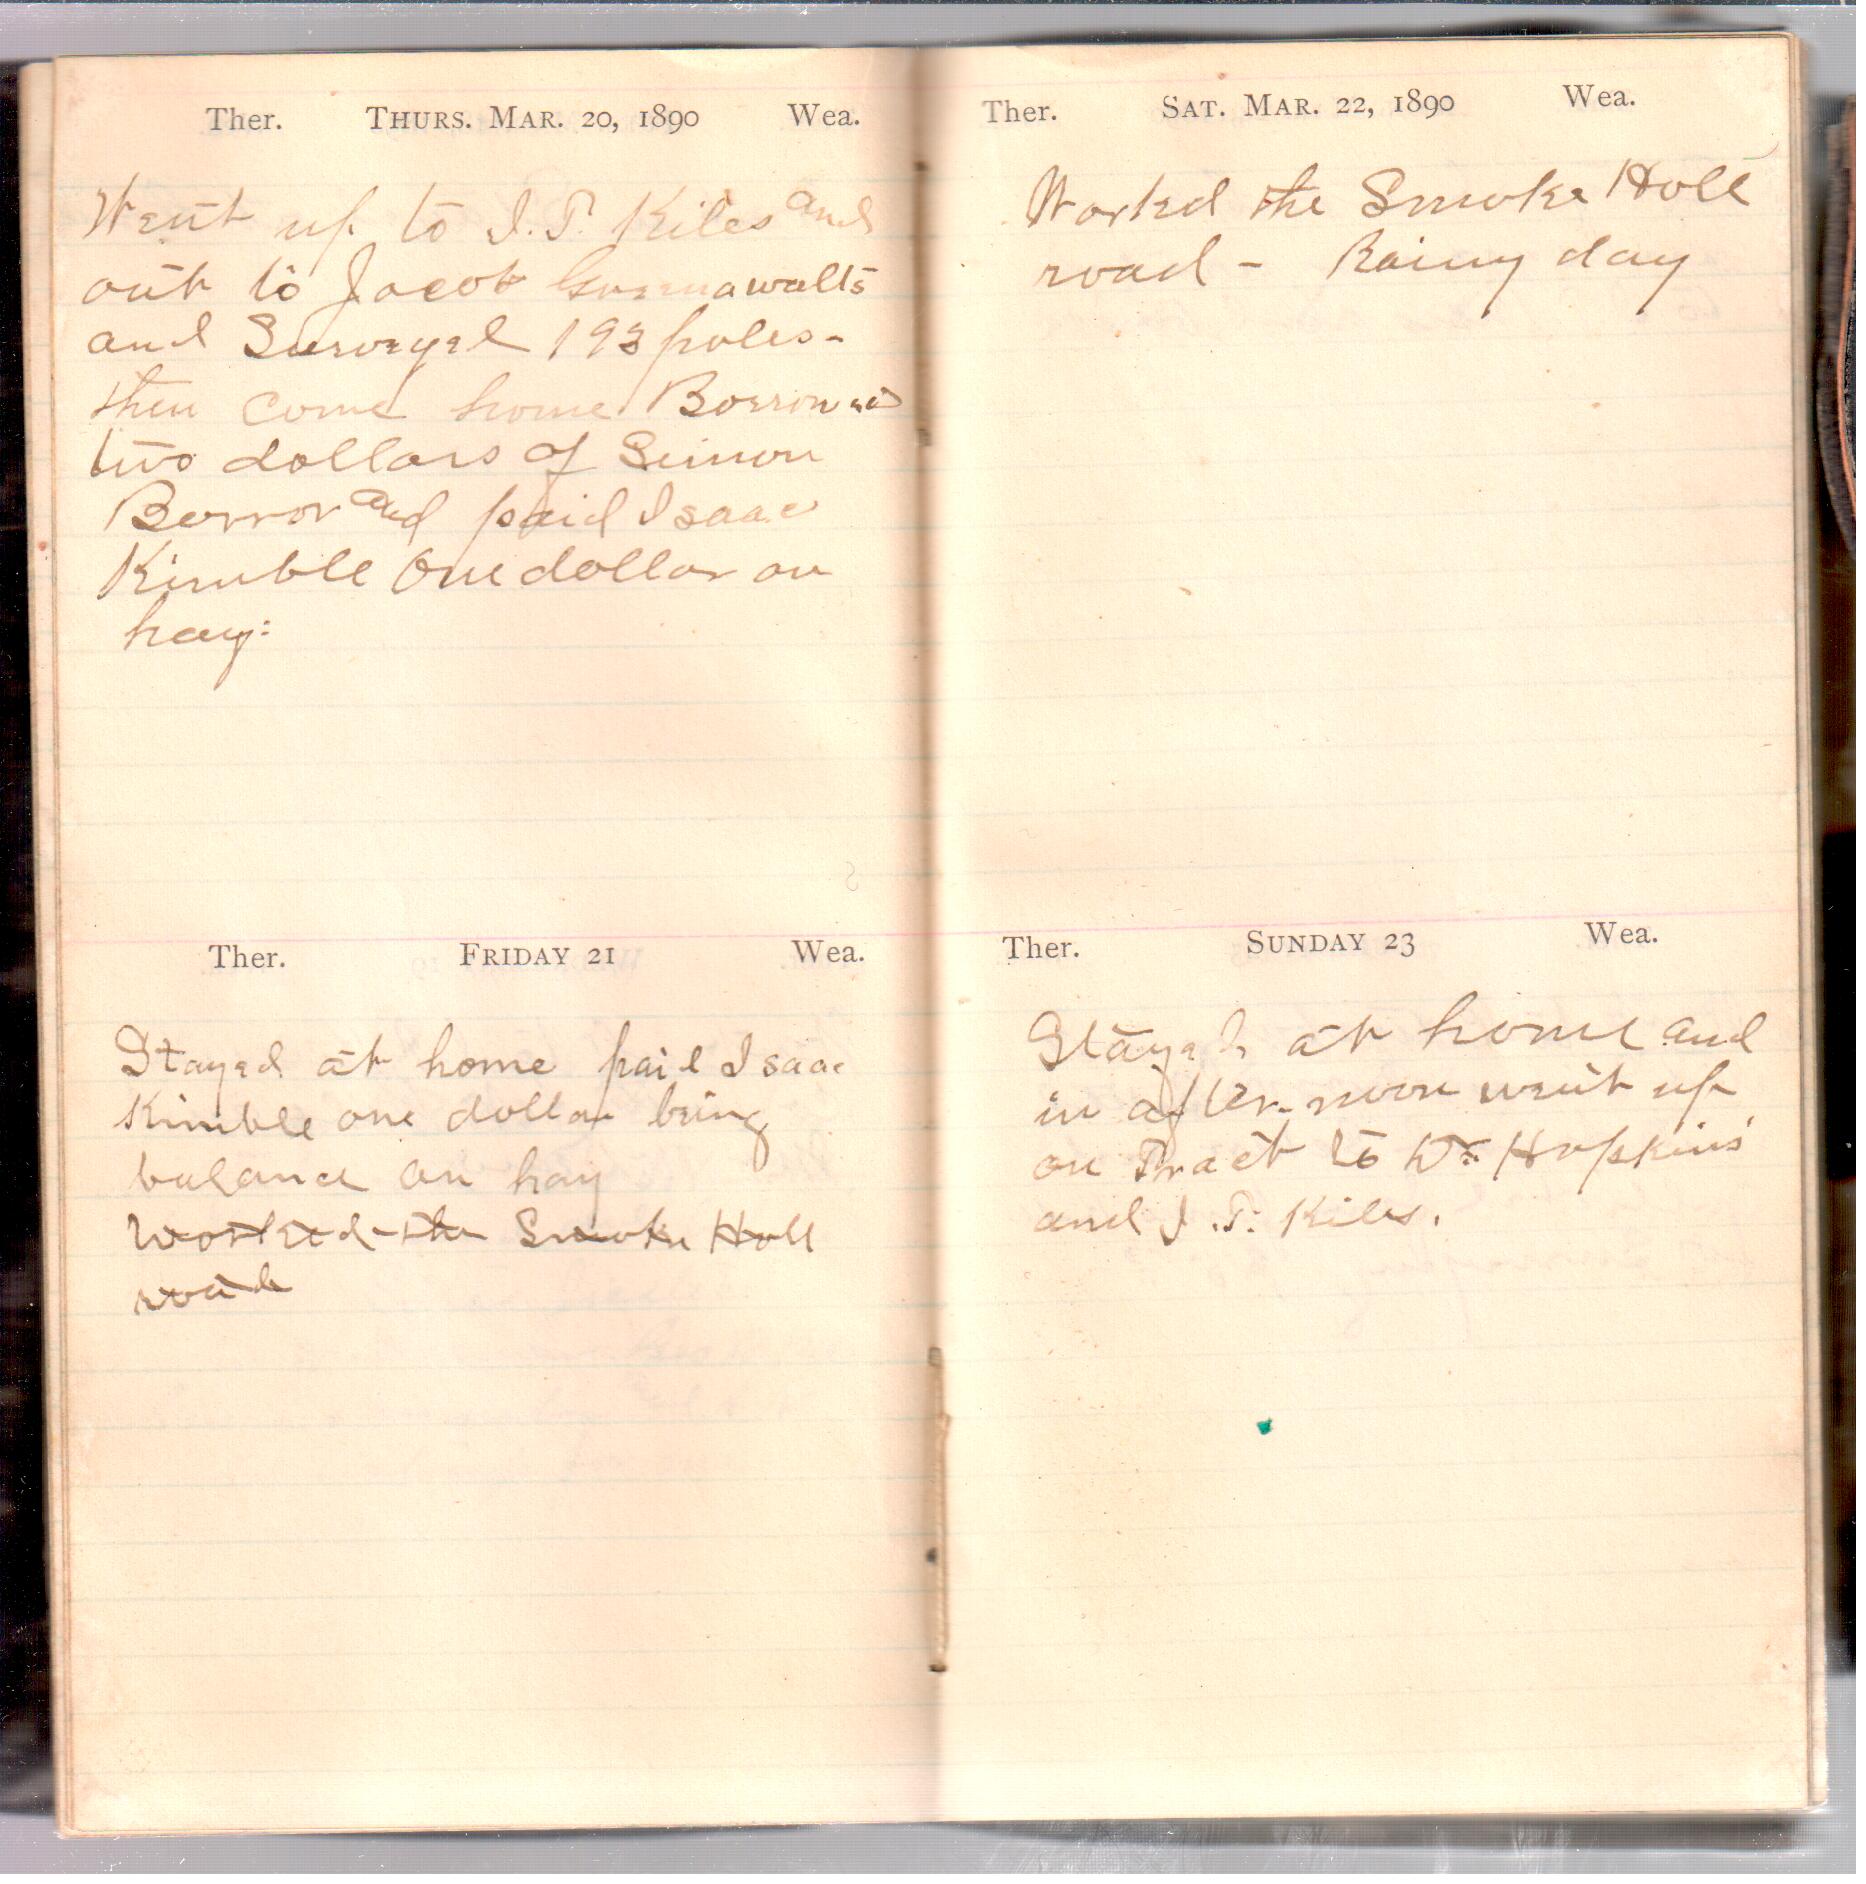 Ther. THURS. MAR. 20, 1890 Wea.
Went up to I. T. Kiles and
out to Jacob Greenawalts
and Surveyed 193 poles -
then come home Borrowed
two dollars of Simon
Borror and paid Isaac
Kimble One dollar on
hay:
Ther. FRIDAY 21 Wea.
Stayed at home paid Isaac
Kimble one dollar being
balance on hay
Worked the Smoke Holl
road
Ther. SAT. MAR. 22, 1890 Wea.
Worked the Smoke Holl
road - Rainy day
Ther. SUNDAY 23 Wea.
Stayed at home and
in after-noon went up
on Tract to Dr Hopkins'
and I. T. Kiles.